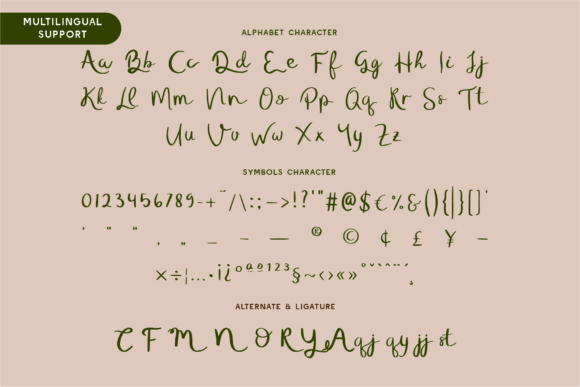 MULTILINGUAL
SUPPORT
ALPHABET CHARACTER
Aa Bb Cc Dd Ee Ff Gg Hh Ii Jj
Kk Ll Mm Nn Oo Pp Qq Rr Ss Tt
Uu Vv Ww Xx Yy Zz
SYMBOLS CHARACTER
0123456789-+¨/\:;–>!?'"#@$€%&(){|}[]'
’ “ ” ‚ „ _ – — ® © ¢ £ ¥ –
×÷¦…·¡¿ºªº¹²³§~‹›«»
ALTERNATE & LIGATURE
C F M N O R Y A qj qy jj st